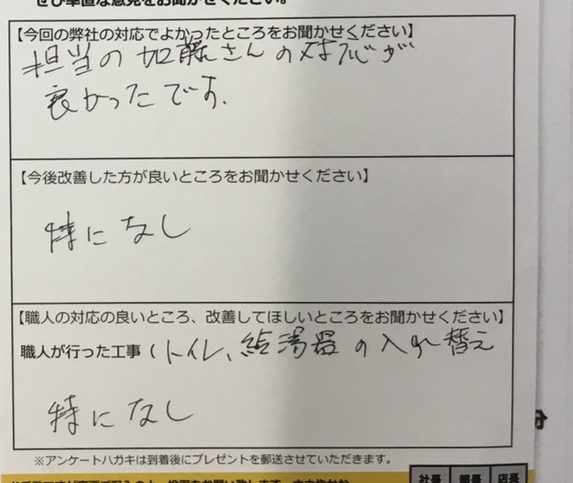 ぜひ率直な意見をお聞かせください。
【今回の弊社の対応でよかったところをお聞かせください】
担当の加藤さんの対応が
良かったです.
【今後改善した方が良いところをお聞かせください】
特になし
【職人の対応の良いところ、改善してほしいところをお聞かせください】
職人が行った工事（トイレ、給湯器の入れ替え
特になし
※アンケートハガキは到着後にプレゼントを郵送させていただきます。
社長 部長 店長